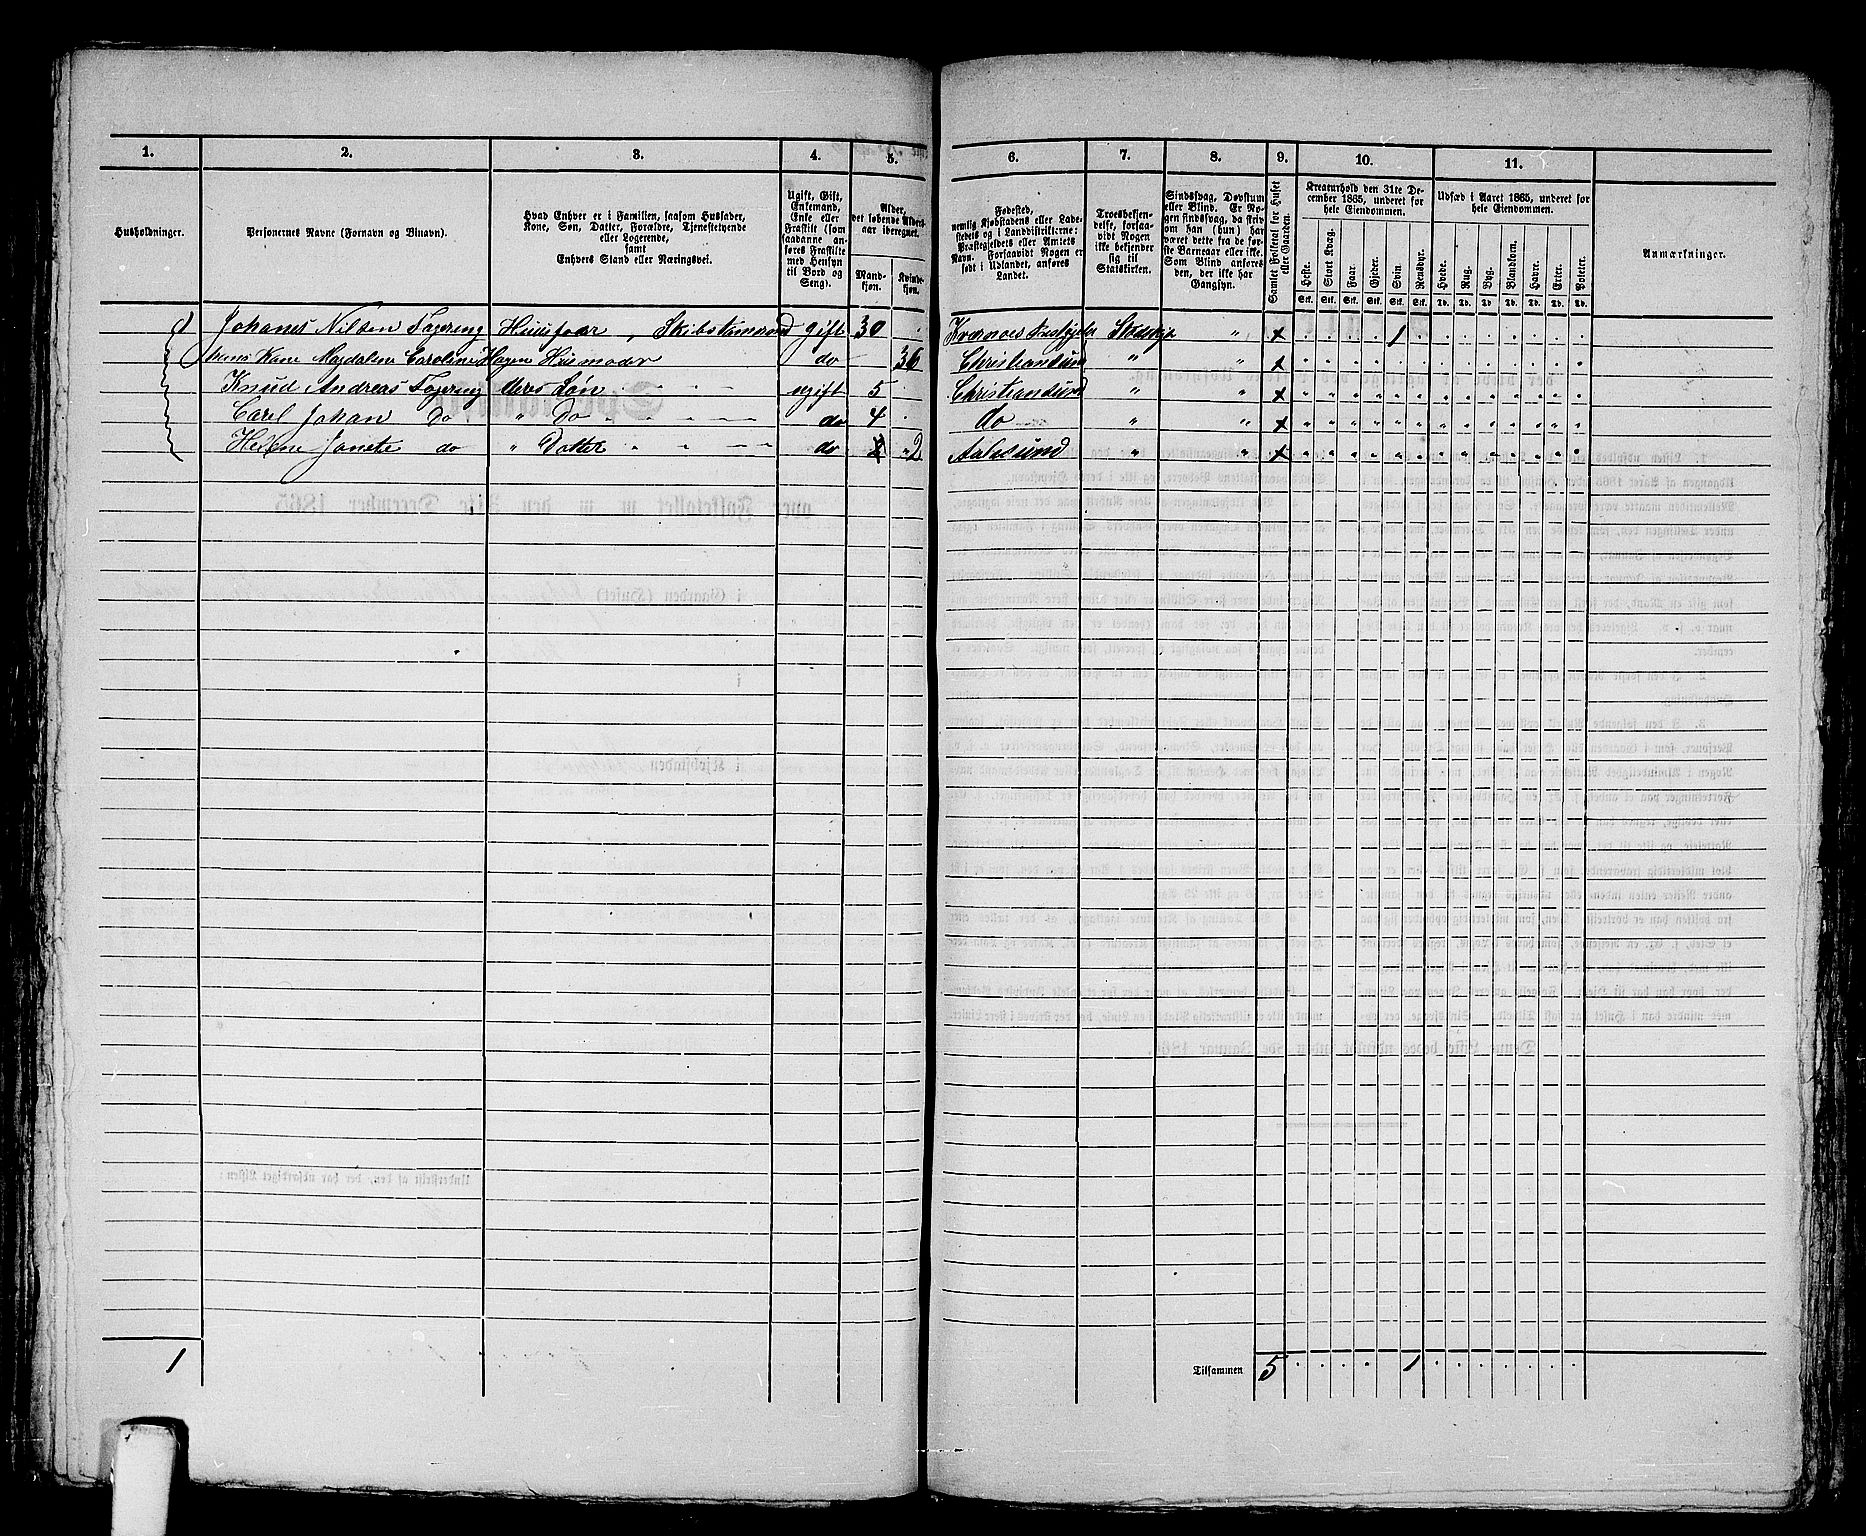 1. 2. 3. 4. 5. 6. 7. 8. 9. 10. 11.
Husholdninger.
Personernes Navne (Fornavn og Binavn).
Hvad Enhver er i Familien, saasom Husfader,
Kone, Søn, Datter, Forældre, Tjenestetyende
eller Logerende,
samt
Enhvers Stand eller Næringsvei.
Ugift, Gift,
Enkemand,
Enke eller
Fraskilt (som
saadanne an-
føres Fraskilte
med Hensyn
til Bord og
Seng).
Alder,
det løbende Alders-
aar iberegnet.
Mand-
kjøn.
Kvinde-
kjøn.
Fødested,
nemlig Kjøbstadens eller Lade-
stedets og i Landdistrikterne:
Præstegjeldets eller Amtets
Navn. Forsaavidt Nogen er
født i Udlandet, anføres
Landet.
Troesbekjen-
delse, forsaa-
vidt Nogen
ikke bekjender
sig til
Statskirken.
Sindssvag, Døvstum
eller Blind. Er No-
gen sindssvag, da skriv
om han (hun) har
været dette fra de før-
ste Barneaar eller ikke.
Som Blind anføres
den, der ikke har
Gangsyn.
Samlet Folketal for Huset
eller Gaarden.
Kreaturhold den 31te De-
cember 1865, underet for
hele Eiendommen.
Heste. Stort Kvæg. Faar. Gjeder. Svin. Rensdyr.
Stk. Stk. Stk. Stk. Stk. Stk.
Udsæd i Aaret 1865, underet for
hele Eiendommen.
Hvede. Rug. Byg. Blandkorn. Havre. Erter. Poteter.
Td. Td. Td. Td. Td. Td. Td.
Anmærkninger.
Johanes Nilsen Fagereng Huusfaer, Skibstømmrmd gift 30 × 1
hans Kone Magdalene Caroline Hagen Husmoder do 36 Christiansund " " ×
Knud Andreas Fagereng deres Søn ugift 5 Christiansund " " ×
Carl Johan Do " Do do 4 do " " ×
Helene Janete do " Datter do 2 Aalesund " " ×
1
Tilsammen 5 1